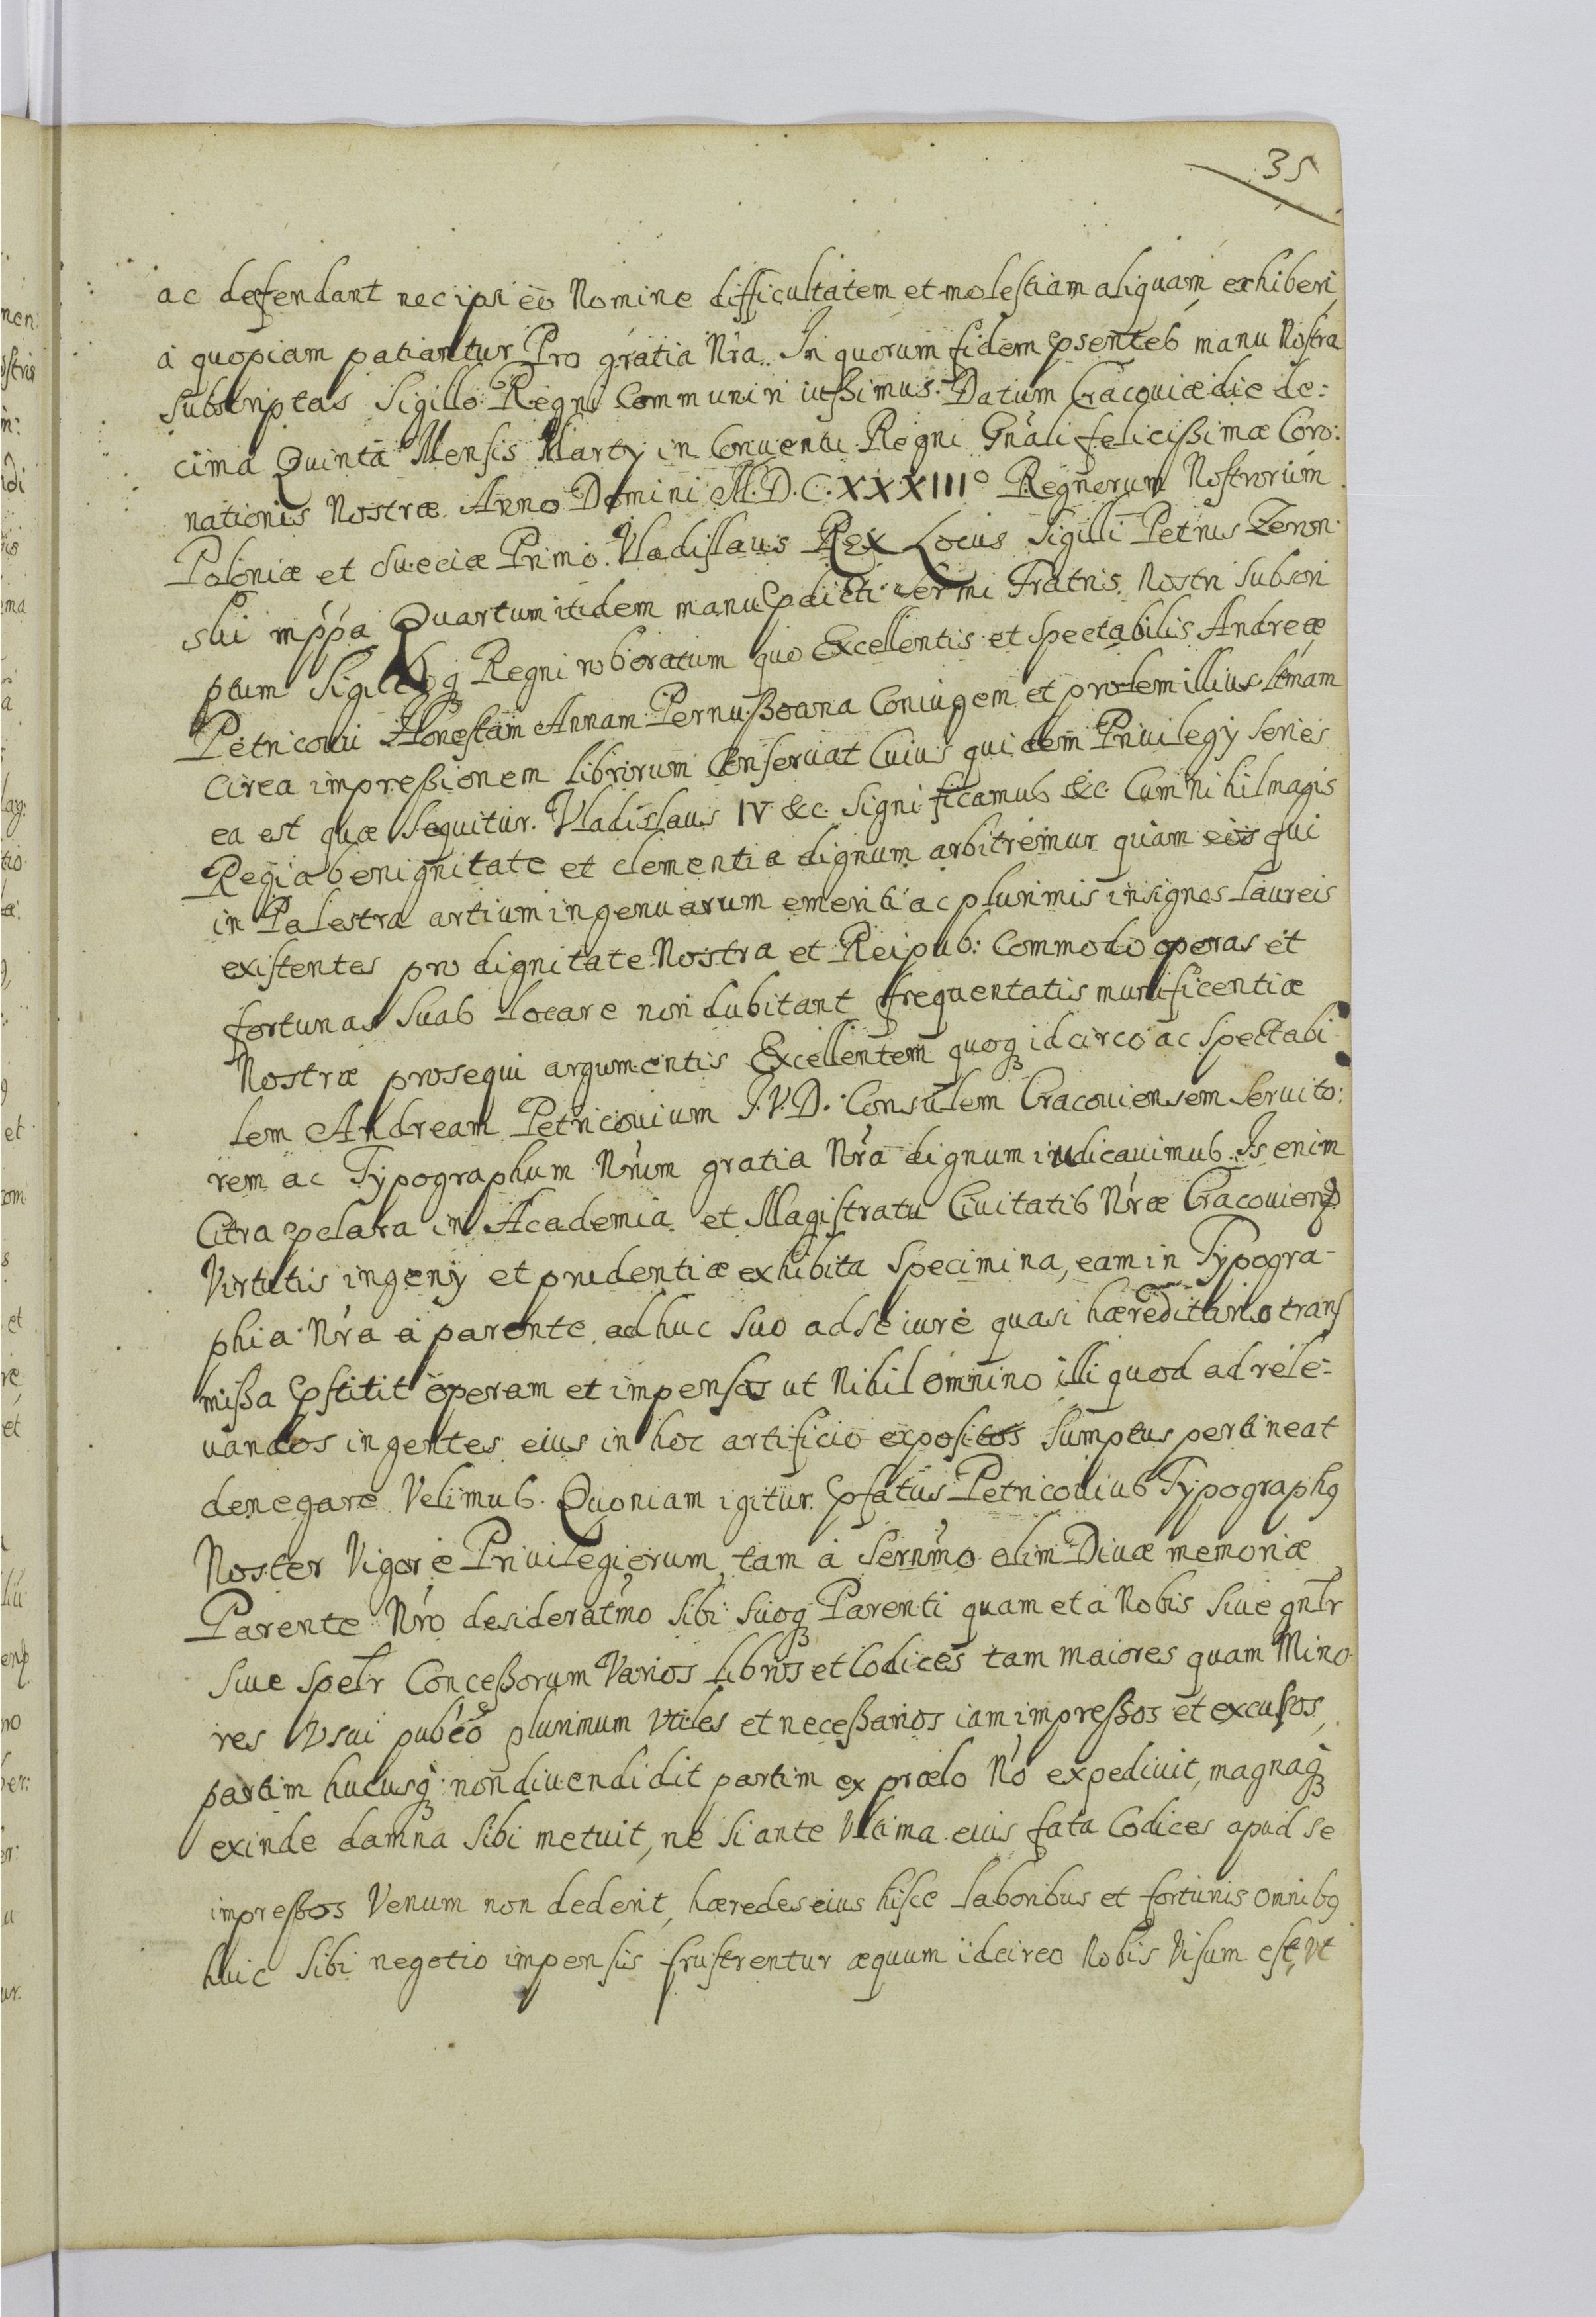 35
ac defendant nec ipsi eo Nomine difficultatem et molestiam aliquam exhiberi
a quopiam patiantur Pro gratia Nra. In quorum fidem psentes manu Nostra
Subscriptas Sigillo Regni Communiri iussimus. Datum Cracoviæ die de:
cima Quinta Mensis Marty in Conventu Regni Gnali felicissimæ Coro:
nationis Nostræ. Anno Domini M.D.C.XXXIIIº Regnorum Nostrorum
Poloniæ et Sueciæ Primo. Vladislaus Rex Locus Sigilli Petrus Zeron:
ski mppa Quartum itidem manu pdicti Sermi Fratris Nostri Subscri
ptum Sigilloq Regni roboratum quo Excellentis et Spectabilis Andreæ
Petricovii Honestam Annam Pernussowna Coniugem et prolem illius ltmam
circa impressionem librorum Conservat Cuius quidem Privilegy Series
ea est quæ Sequitur. Vladislaus IV &c. Significamus &c. Cum nihil magis
Regia benignitate et clementia dignum arbitremur quam eos qui
in Palestra artium ingenuarum emeriti ac plurimis insignes Laureis
existentes pro dignitate Nostra et Reipub: Commodo operas et
fortunas Suas locare non dubitant frequentatis munificentiæ
Nostræ prosequi argumentis Excellentem quoq idcirco ac Spectabi
lem Andream Petricovium J.V.D. Consulem Cracoviensem Servito:
rem ac Typographum Nrum gratia Nra dignum iudicavimus. Is enim
Citra pclara in Academia et Magistratu Civitatis Nræ Cracovien
Virtutis ingenij et prudentiæ exhibita Specimina, eam in Typogra-
phia Nra a parente adhuc Suo ad se iure quasi hæreditario trans
missa pstitit operam et impensas ut Nihil omnino illi quod ad rele-
vandos ingentes eius in hoc artificio expositos Sumptus pertineat
denegare Velimus. Quoniam igitur pfatus Petricovius Typographq
Noster Vigore Privilegiorum tam a Sernmo olim Divæ memoriæ
Parente Nro desideratmo Sibi Suoq Parenti quam et a Nobis Sive gnlr
Sive Spelr Concessorum Varios Libros et Codices tam maiores quam Mino
res Usui pubco plurimum Utiles et necessarios iam impressos et excusos,
partim hucusq non divendidit partim ex prælo No expedivit, magnaq
exinde damna Sibi metuit, ne Si ante Ultima eius fata Codices apud se
impressos Venum non dederit, hæredes eius hisce laboribus et fortunis omnibq
huic Sibi negotio impensis frustrentur æquum idcirco Nobis Visum est, Vt